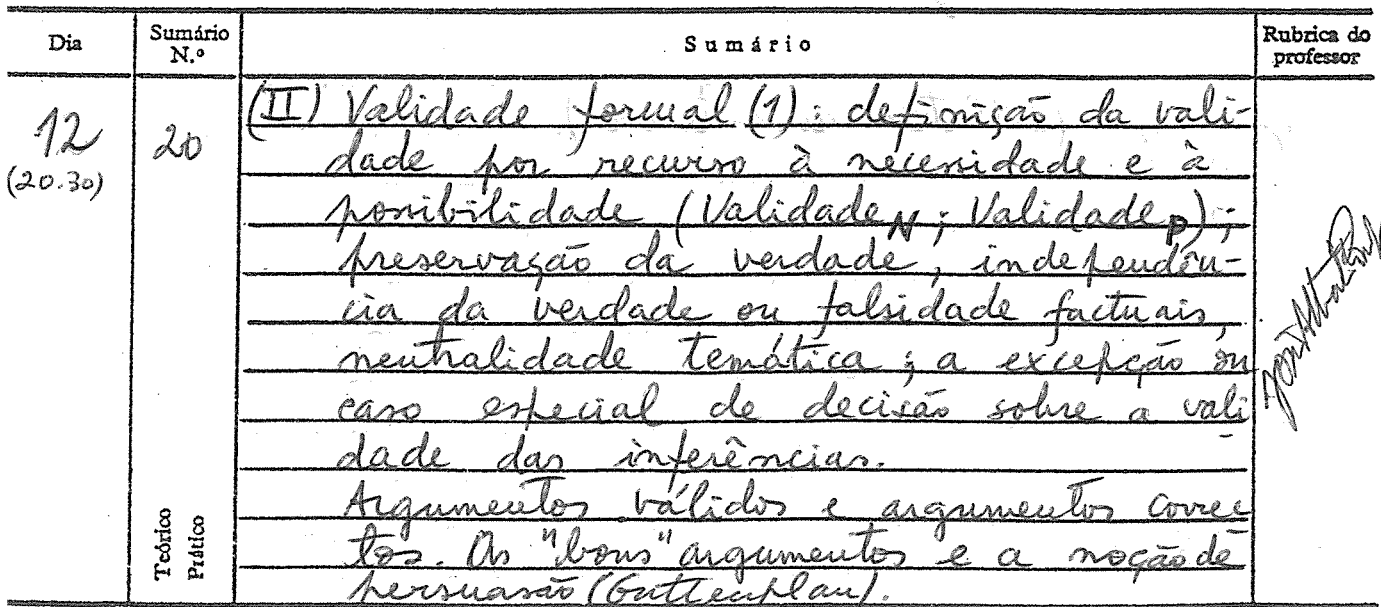 Dia
Sumário N.º
Sumário
Rubrica do professor
12
(20.30)
20
Teórico
Prático
(II) Validade formal (1): definição da vali-
dade por recurso à necessidade e à
possibilidade (Validade N; Validade P);
preservação da verdade, independên-
cia da verdade ou falsidade factuais,
neutralidade temática; a excepção ou
caso especial de decisão sobre a vali
dade das inferências.
Argumentos válidos e argumentos correc
tos. Os "bons" argumentos e a noção de
persuasão (Guttenplan).